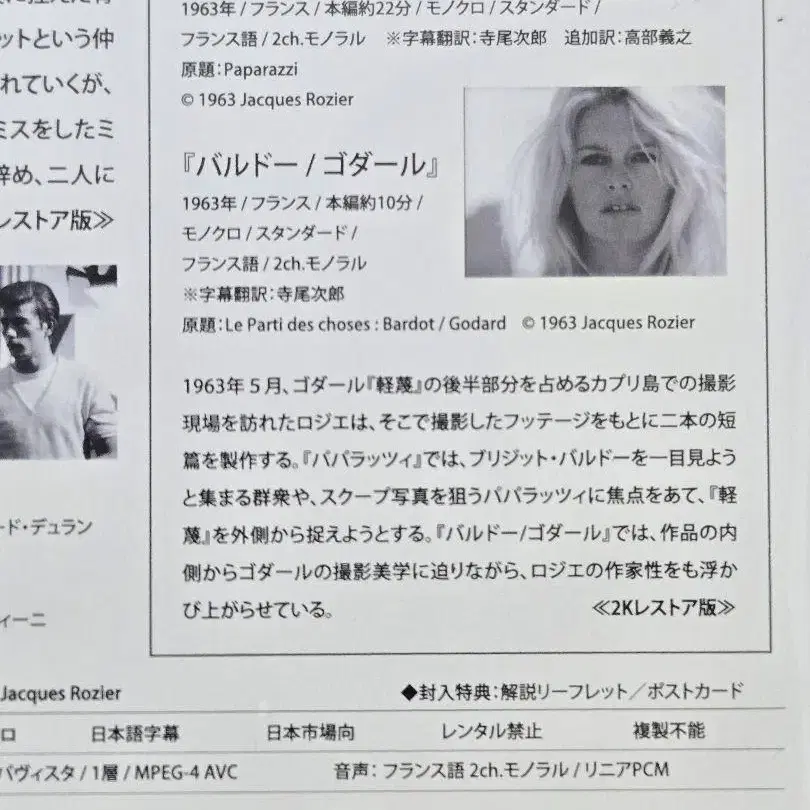 ットという仲
れていくが、
ミスをしたミ
辞め、二人に
レストア版≫
ード・デュラン
ィーニ
1963年 / フランス / 本編約22分 / モノクロ / スタンダード /
フランス語 / 2ch.モノラル　※字幕翻訳：寺尾次郎　追加訳：高部義之
原題：Paparazzi
© 1963 Jacques Rozier
『バルドー / ゴダール』
1963年 / フランス / 本編約10分 /
モノクロ / スタンダード /
フランス語 / 2ch.モノラル
※字幕翻訳：寺尾次郎
原題：Le Parti des choses : Bardot / Godard　© 1963 Jacques Rozier
1963年５月、ゴダール『軽蔑』の後半部分を占めるカプリ島での撮影
現場を訪れたロジエは、そこで撮影したフッテージをもとに二本の短
篇を製作する。『パパラッツィ』では、ブリジット・バルドーを一目見よう
と集まる群衆や、スクープ写真を狙うパパラッツィに焦点をあて、『軽
蔑』を外側から捉えようとする。『バルドー/ゴダール』では、作品の内
側からゴダールの撮影美学に迫りながら、ロジエの作家性をも浮か
び上がらせている。　≪2Kレストア版≫
Jacques Rozier　◆封入特典：解説リーフレット／ポストカード
ロ　日本語字幕　日本市場向　レンタル禁止　複製不能
バヴィスタ / 1層 / MPEG-4 AVC　音声： フランス語 2ch.モノラル / リニアPCM